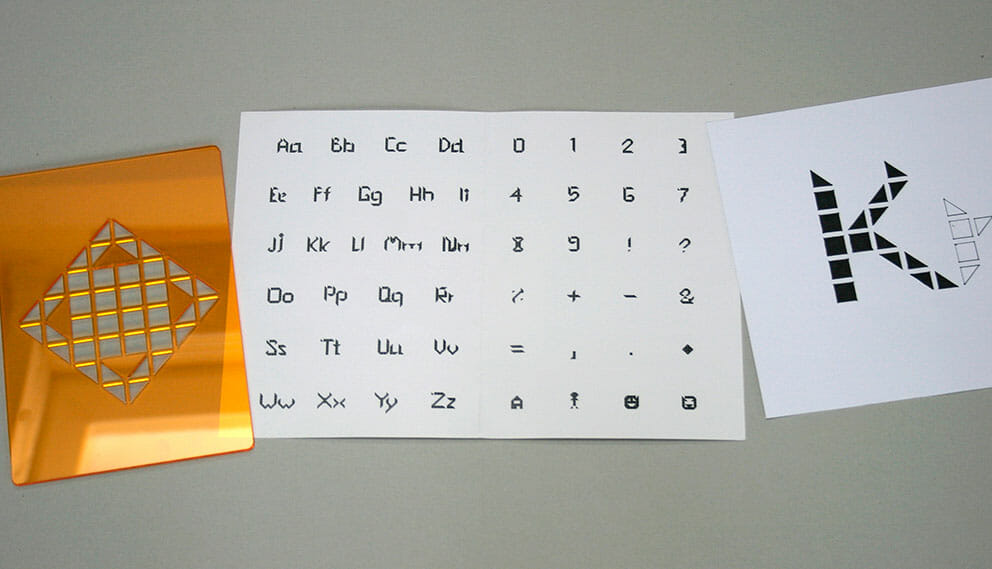 Aa Bb Cc Dd
Ee Ff Gg Hh Ii
Jj Kk Ll Mm Nn
Oo Pp Qq Rr
Ss Tt Uu Vv
Ww Xx Yy Zz
0 1 2 3
4 5 6 7
8 9 ! ?
% + - &
= , . ◆
K